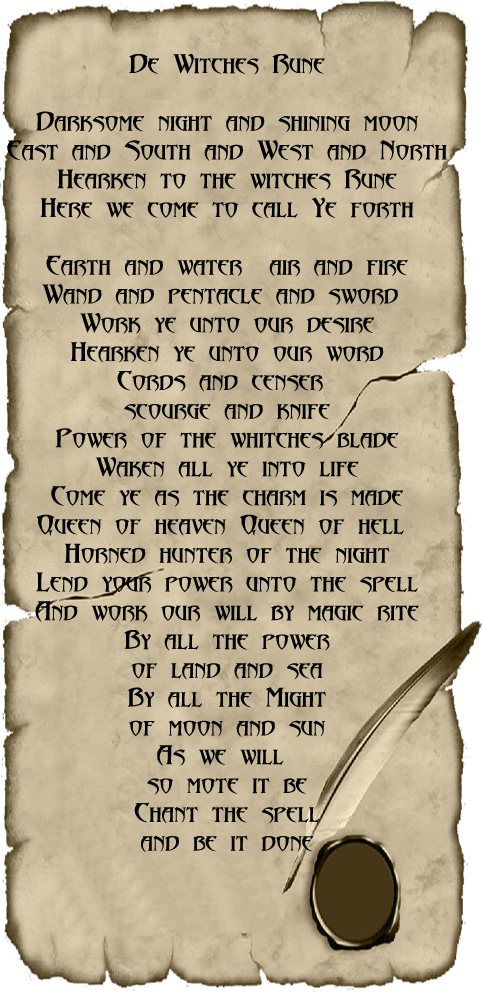 De Witches Rune
Darksome night and shining moon
East and South and West and North
Hearken to the witches Rune
Here we come to call Ye forth
Earth and water air and fire
Wand and pentacle and sword
Work ye unto our desire
Hearken ye unto our word
Cords and censer
scourge and knife
Power of the whitches blade
Waken all ye into life
Come ye as the charm is made
Queen of heaven Queen of hell
Horned hunter of the night
Lend your power unto the spell
And work our will by magic rite
By all the power
of land and sea
By all the Might
of moon and sun
As we will
so mote it be
Chant the spell
and be it done